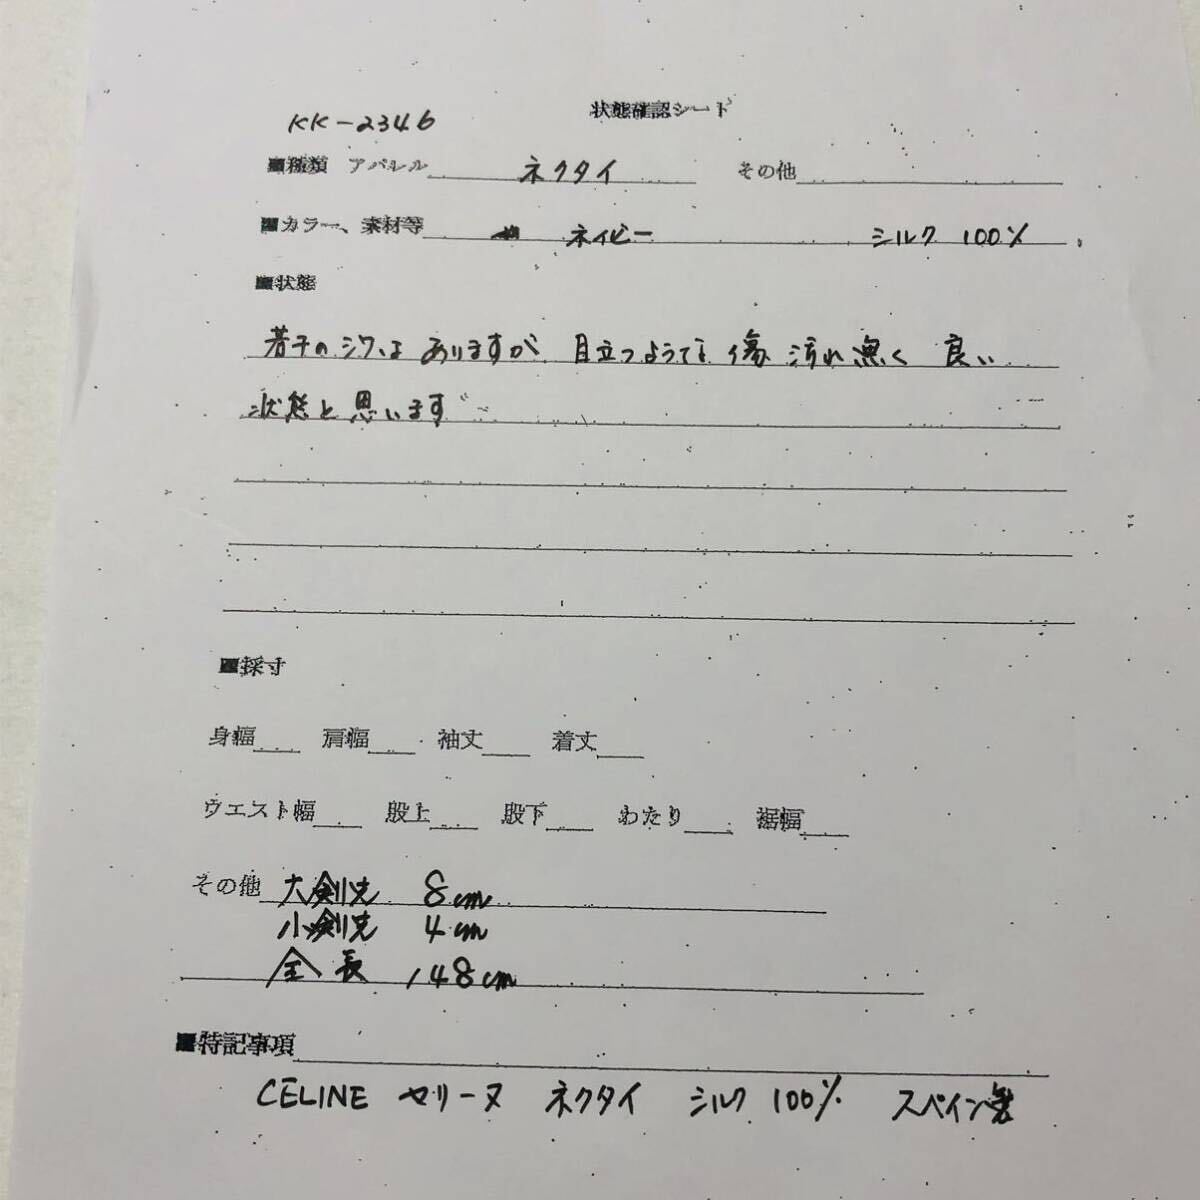 状態確認シート
KK-2346
■種類 アパレル ネクタイ その他
■カラー、素材等 ネイビー シルク 100%
■状態
若干のシワはありますが 目立つような傷 汚れ無く 良い
状態と思います
■採寸
身幅 肩幅 袖丈 着丈
ウエスト幅 股上 股下 わたり 裾幅
その他 大剣先 8cm
小剣先 4cm
全長 148cm
■特記事項
CELINE セリーヌ ネクタイ シルク 100% スペイン製